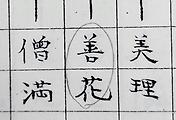 美理
善花
僧満